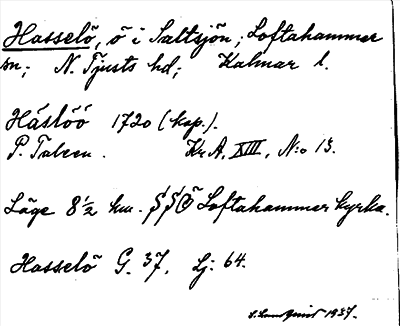 Hasselö, ö i Saltsjön; Loftahammar
sn; N. Tjusts hd; Kalmar l.
Häslöö 1720 (kop.).
P. Kr. A. XIII, N:o 13.
Läge 8½ km. SSO Loftahammar kyrka.
Hasselö G. 37. Lj: 64.
1937.